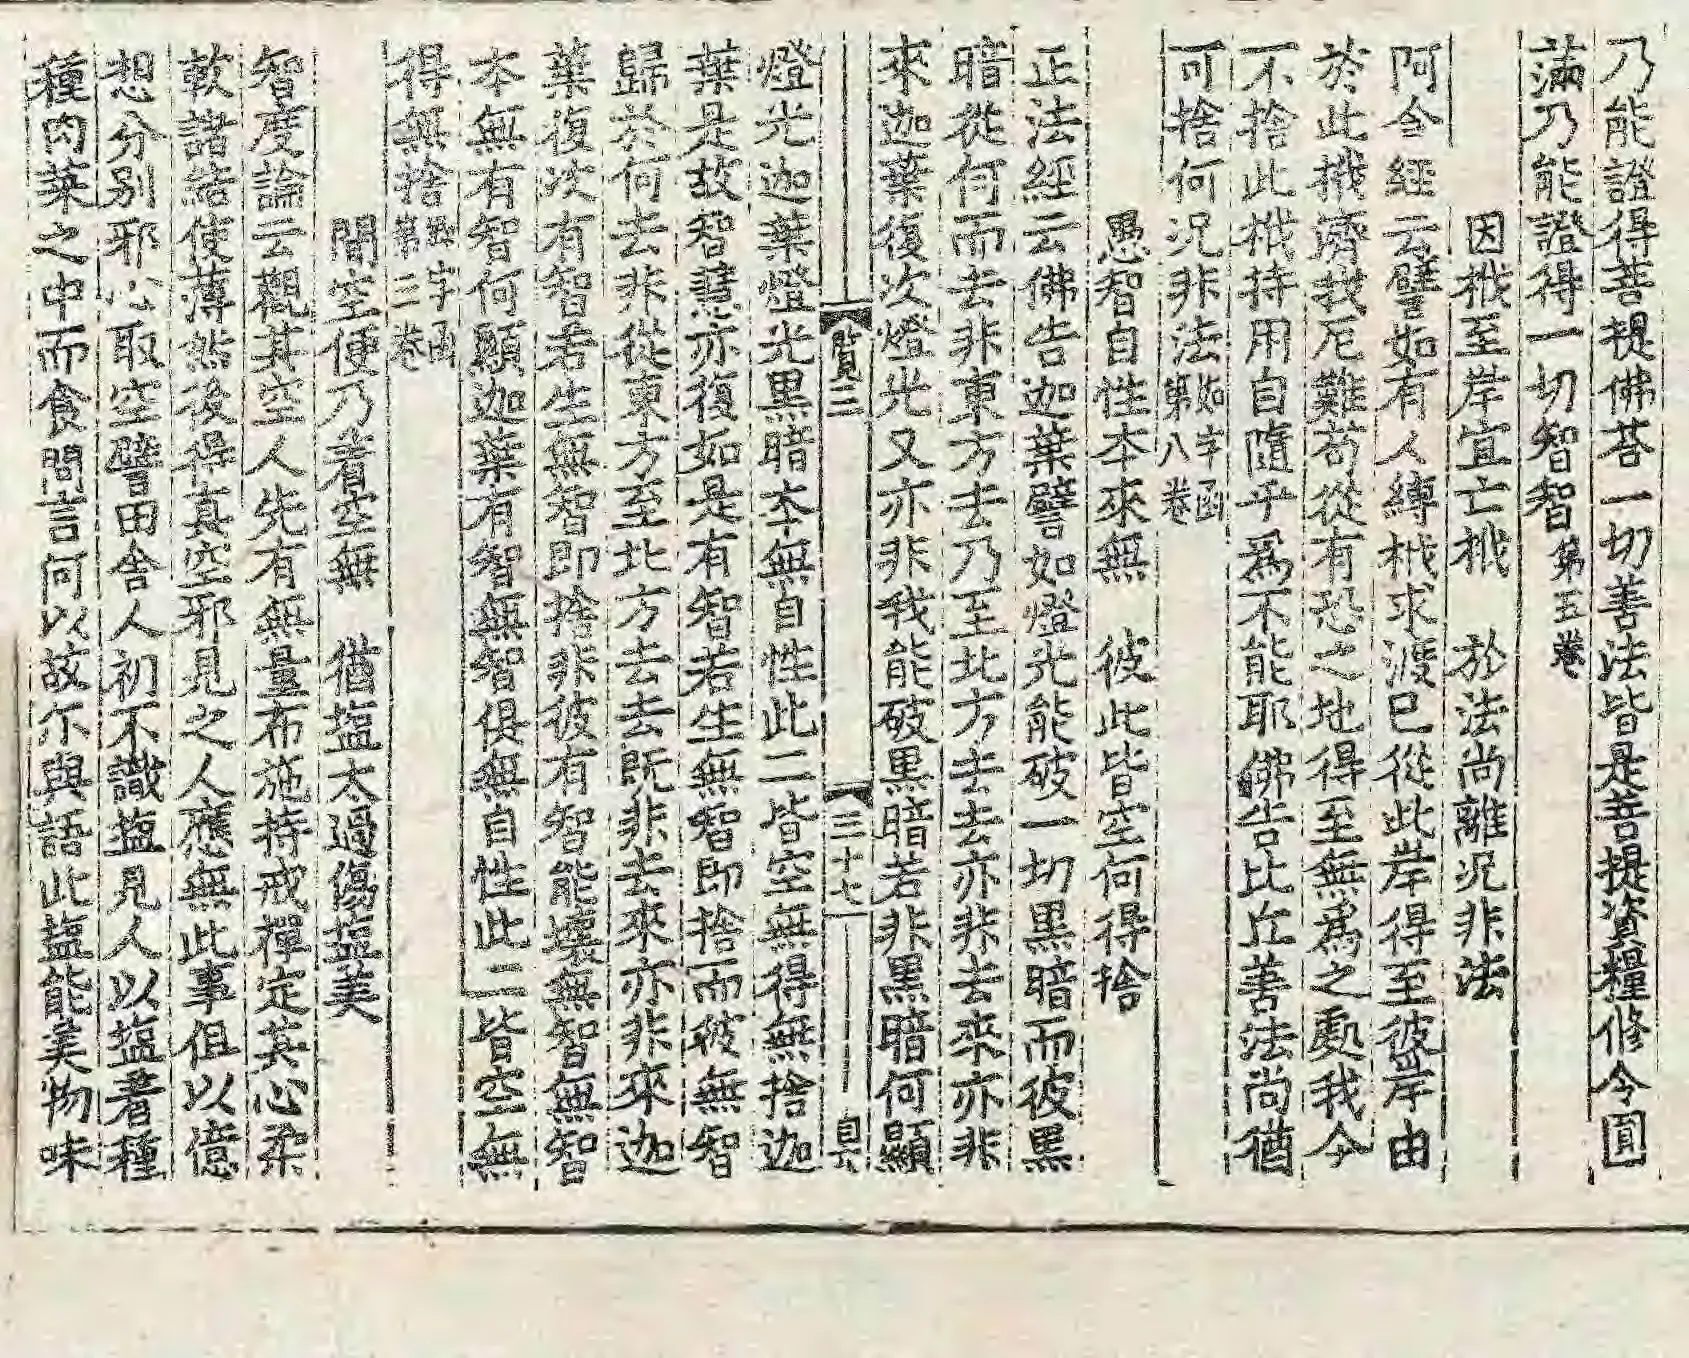 乃能證得菩提佛荅一切善法皆是菩提資糧修令圓
滿乃能證得一切智智第五卷
因栰至岸宜亡栰　於法尚離況非法
阿含經云譬如有人縛栰求渡已從此岸得至彼岸由
於此栰濟我厄難苟從有恐之地得至無為之處我今
不捨此栰持用自隨乎為不能耶佛告比丘善法尚猶
可捨何況非法如字函第八卷
愚智自性本來無　彼此皆空何得捨
正法經云佛告迦葉譬如燈光能破一切黑暗而彼黑
暗從何而去非東方去乃至北方去去亦非去來亦非
來迦葉復次燈光又亦非我能破黑暗若非黑暗何顯
賢三　三十七
燈光迦葉燈光黑暗本無自性此二皆空無得無捨迦
葉是故智慧亦復如是有智若生無智即捨而彼無智
歸於何去非從東方至北方去去既非去來亦非來迦
葉復次有智若生無智即捨非彼有智能壞無智無智
本無有智何顯迦葉有智無智俱無自性此二皆空無
得無捨字函第三卷
聞空便乃著空無　猶塩太過傷塩美
智度論云觀其空人先有無量布施持戒禪定其心柔
軟諸結使薄然後得真空邪見之人應無此事但以億
想分別邪心取空譬田舍人初不識塩見人以塩著種
種肉菜之中而食問言何以故尓與語此塩能美物味